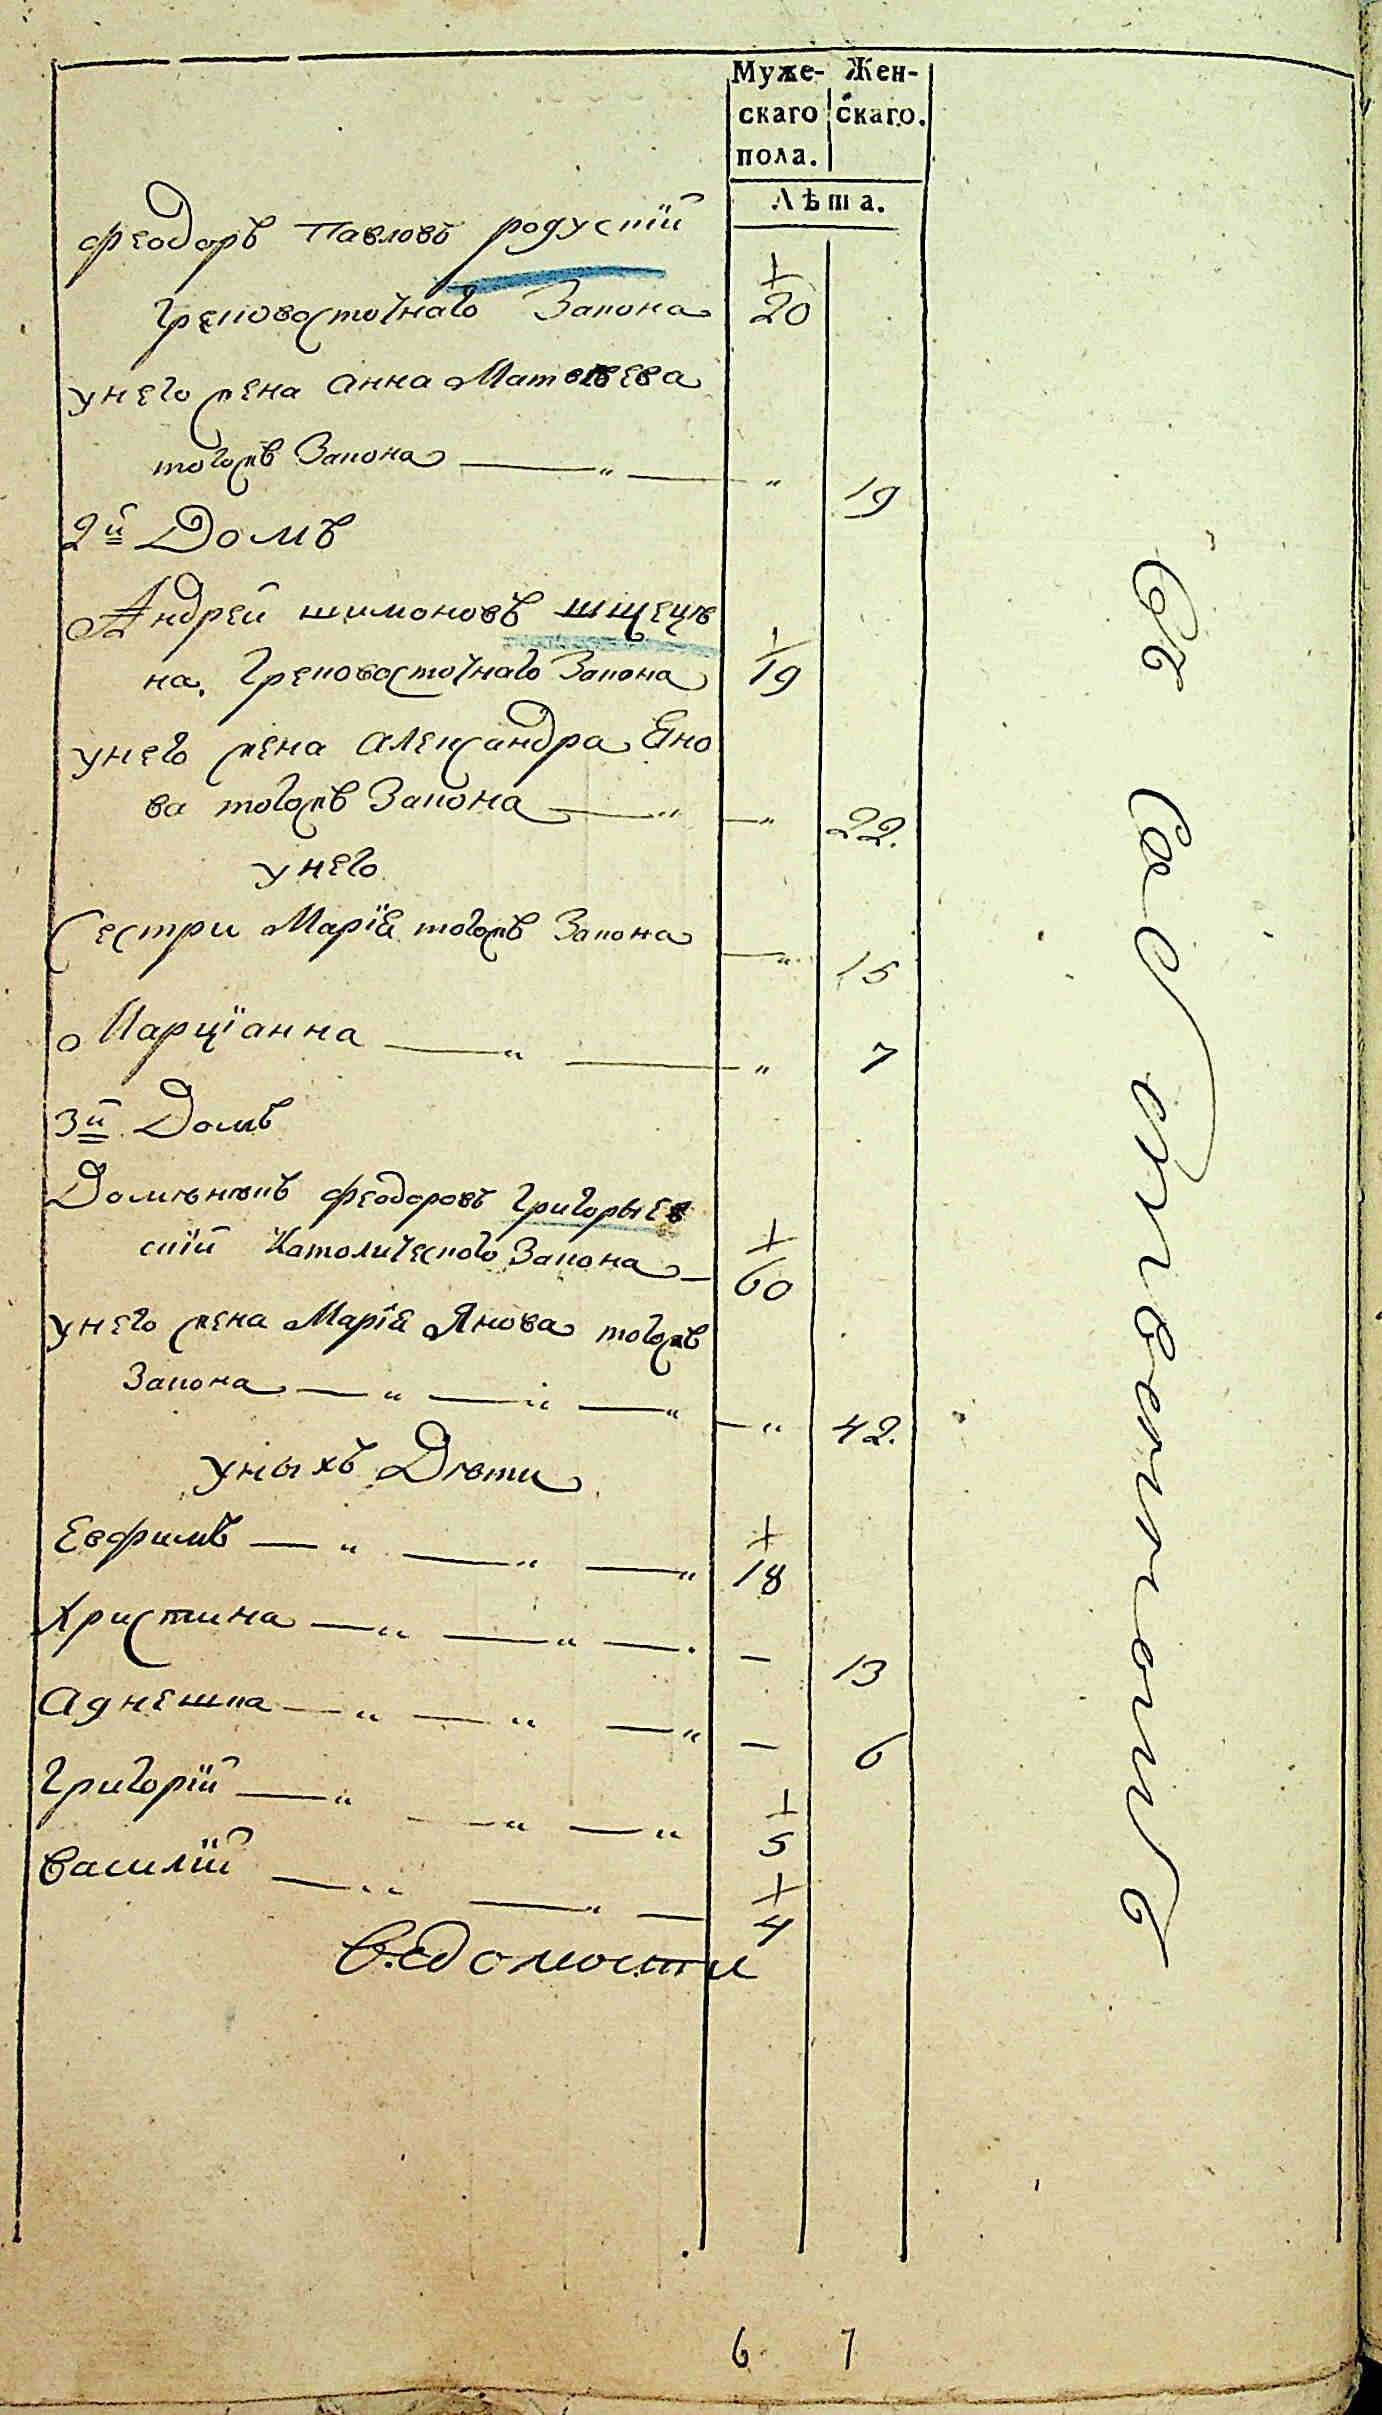 Муже- Жен-
скаго скаго.
пола.
Лѣта.
Феодоръ Павловъ родускій
Грековосточнаго Закона 20
унего жена Анна Матвѣева
тогожъ Закона — " — " 19
2й Домъ
Андрей Шимоновъ
на. Грековосточнаго Закона 19
унего жена Александра Яно
ва тогожъ Закона — " — " 22.
унего
Сестри Марія тогожъ Закона — " 15
Марціанна — " — " 7
3й Домъ
Домѣникъ Феодоровъ Григорьев
скій Католического Закона — 60
унего жена Марія Янова тогожъ
Закона — " — " — " — " 42.
уныхъ Дѣти
Евфимъ — " — " — " 18
Христина — " — " — . — 13
Агнешка — " — " — " — 6
Григорій — " — " — " 5
Василій — " — " — 4
Ведомости
6 7